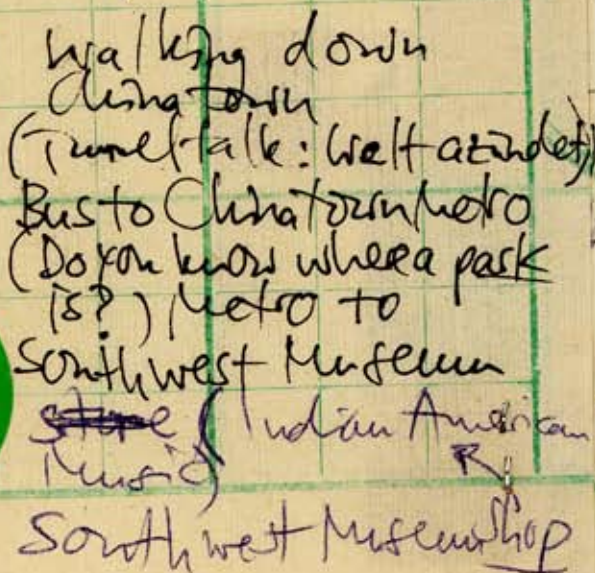 walking down
Chinatown
(Tunneltalk: Welt
Bus to Chinatown Metro
(Do you know where a park
is?) Metro to
Southwest Museum
(Indian American
Music)
Southwest Museumshop